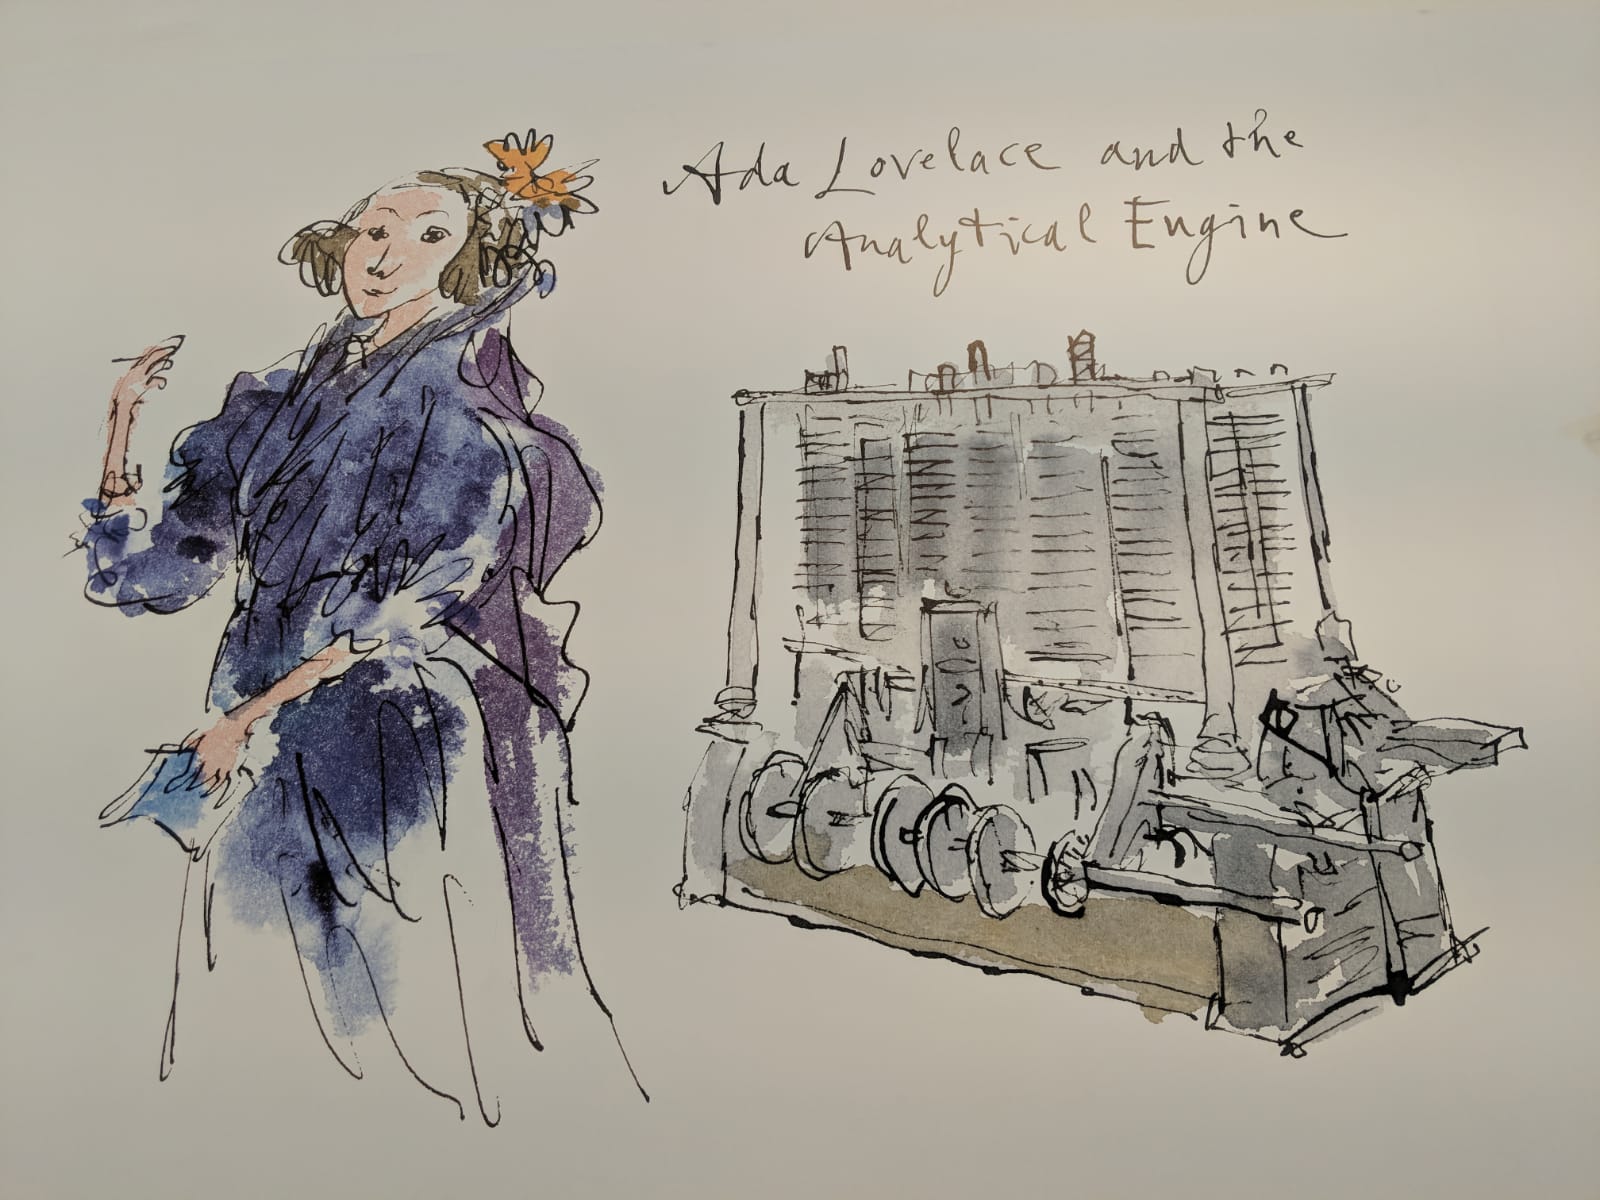 Ada Lovelace and the
Analytical Engine